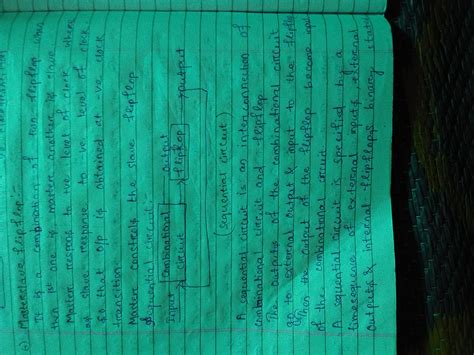 c) Masterslave flipflop :-
It is a combination of two flipflop when
then one is master another is slave
Master respons to +ve level of clock where
as slave response to -ve level of clock
so that o/p is obtained at -ve clock
transition.
Master controls the slave flipflop
Sequential circuit :
Input Combinational circuit output flipflop output
(Sequential circuit)
A sequential circuit is an interconnection of
combinational circuit and flipflop
The outputs of the combinational circuit
go to external output & input to the flipflop
When the output of the flipflop become input
of the combinational circuit
A sequential circuit is specified by a
time sequence of external inputs external
outputs & internal flipflops binary states